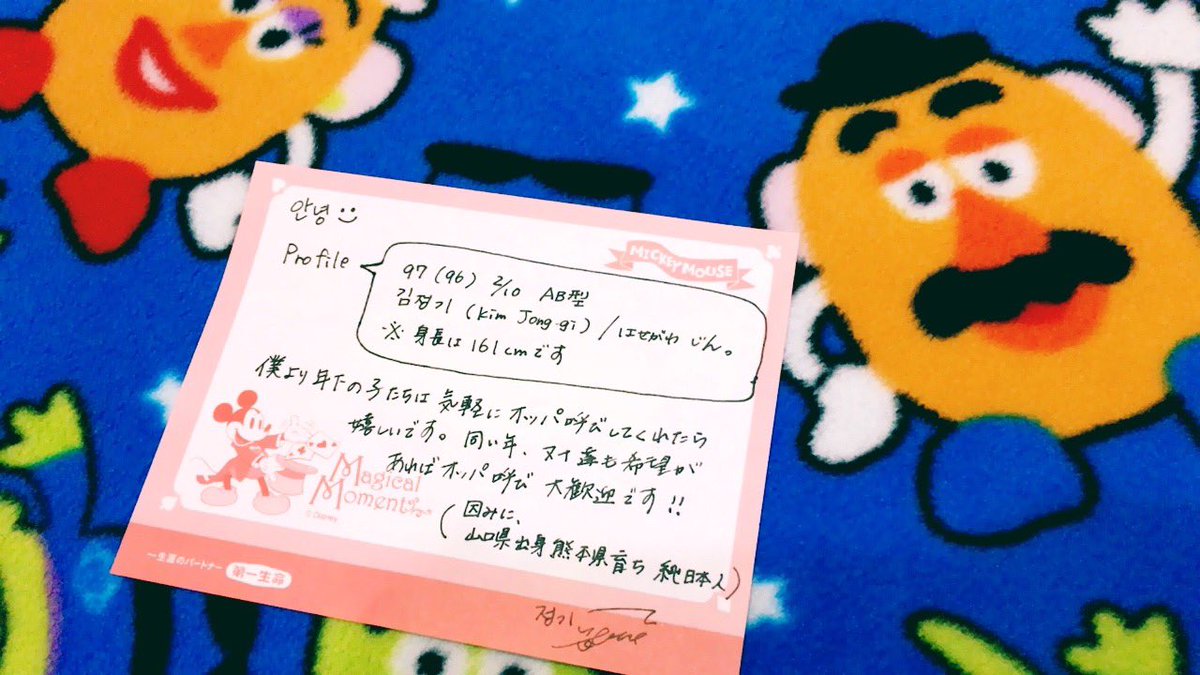 안녕 :)
MICKEY MOUSE
Profile
97 (96) 2/10 AB型
김정기 (Kim Jong-gi) / はせがわ じん。
※ 身長は 161cmです
僕より年下の子たちは 気軽に オッパ呼びしてくれたら
嬉しいです。同い年、ヌナ達も希望が
あればオッパ呼び 大歓迎です!!
(因みに、
山口県出身熊本県育ち 純日本人)
Magical
Moment
© Disney
一生涯のパートナー 第一生命
정기